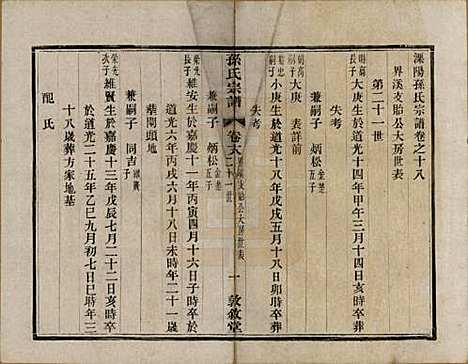 溧陽孫氏宗譜卷之十八
界溪支貽公大房世表
第二十一世
明高
長子
大庚生於道光十四年甲午三月十四日亥時
失考
明高
大庚 表詳前
兼嗣子 炳松 金楚
五子
之庚生於道光十八年戊戌五月十八日卯時葬
失考
孫氏宗譜
卷之十八
二十一世
一
敦敘堂
榮先
長子
維安生於嘉慶十一年丙寅四月十六日亥時卒
於道光六年丙戌六月十八日未時年二十一歲
葬開頭地
兼嗣子 炳松 金楚
五子
榮先
次子
維賢生於嘉慶十三年戊辰七月二十二日亥時卒
於道光二十五年乙巳九月初七日巳時年三
十八歲葬方家地基
兼嗣子 同吉
配氏